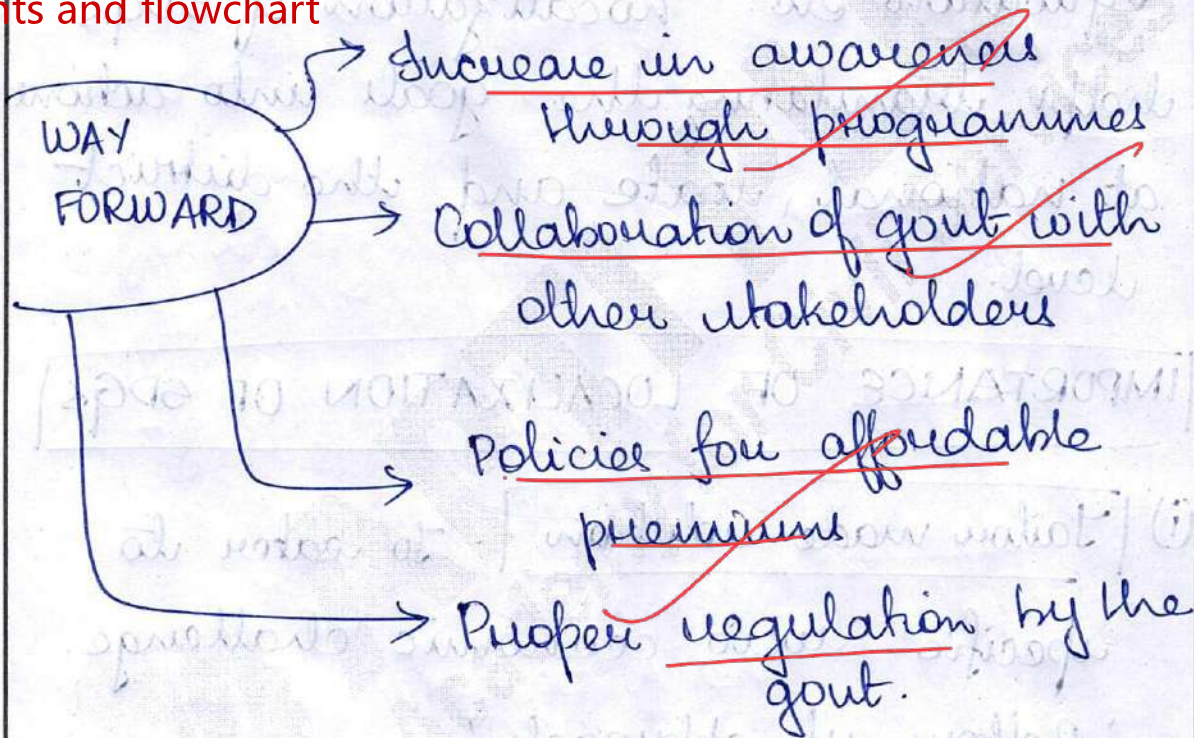 nts and flowchart
WAY
FORWARD
Increase in awareness
through programmes
Collaboration of govt with
other stakeholders
Policies for affordable
premiums
Proper regulation by the
govt.
IMPORTANCE OF LOCALIZATION OF SDGs